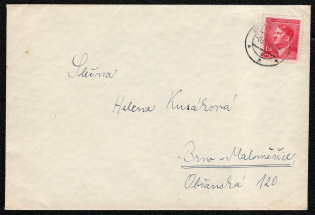 Slečna
Helena Kusáková
Brno-Maloměřice
Občanská 120